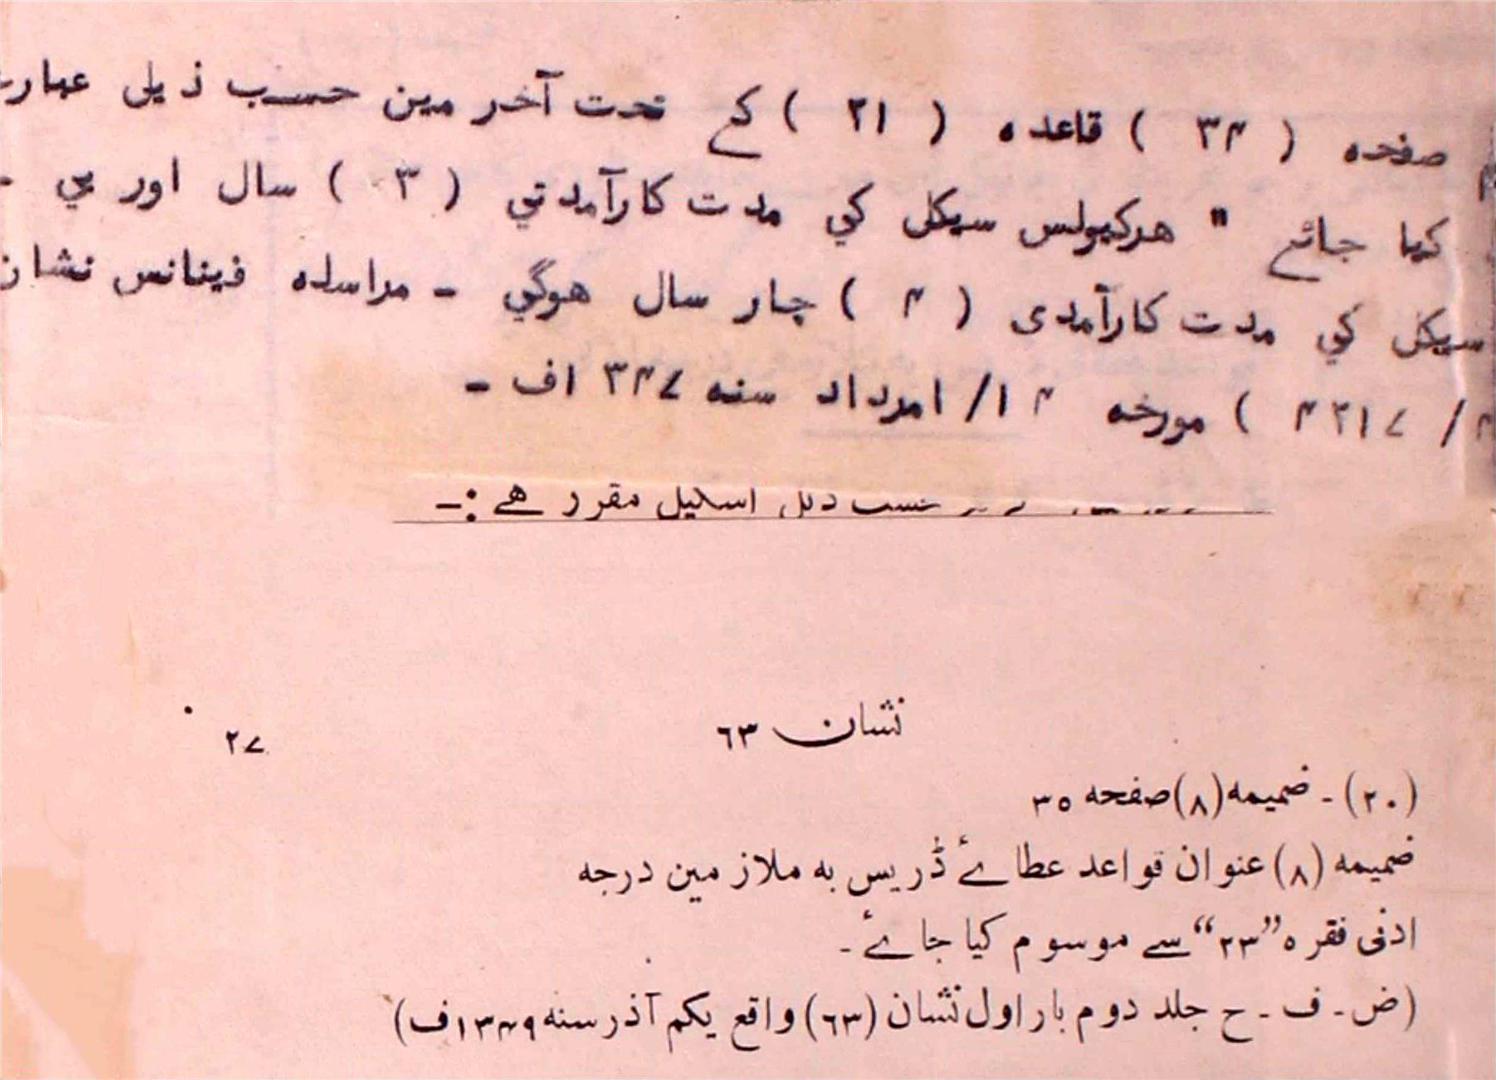 صفحہ ( ۳۴ ) قاعدہ ( ۲۱ ) کے تحت آخر مین حسب ذیل
کیا جائے " ہرکیولس سیکل کي مدت کارآمدتي ( ۳ ) سال اور بي -
سیکل کي مدت کارآمدی ( ۴ ) چار سال ہوگي - مراسلہ فینانس نشان
/ ۴۲۱۷ ) مورخہ ۱۴/ امرداد سنہ ۱۳۴۷ف -
حسب ذیل اسکیل مقرر ہے :-
نشان ۶۳
۲۷
(۲۰) - ضمیمہ (۸) صفحہ ۳۵
ضمیمہ (۸) عنوان قواعد عطاۓ ڈریس بہ ملازمین درجہ
ادنی فقرہ ”۲۳“ سے موسوم کیا جاۓ -
(ض - ف - ح جلد دوم بار اول نشان (۶۳) واقع یکم آذر سنہ ۱۳۴۹ف)